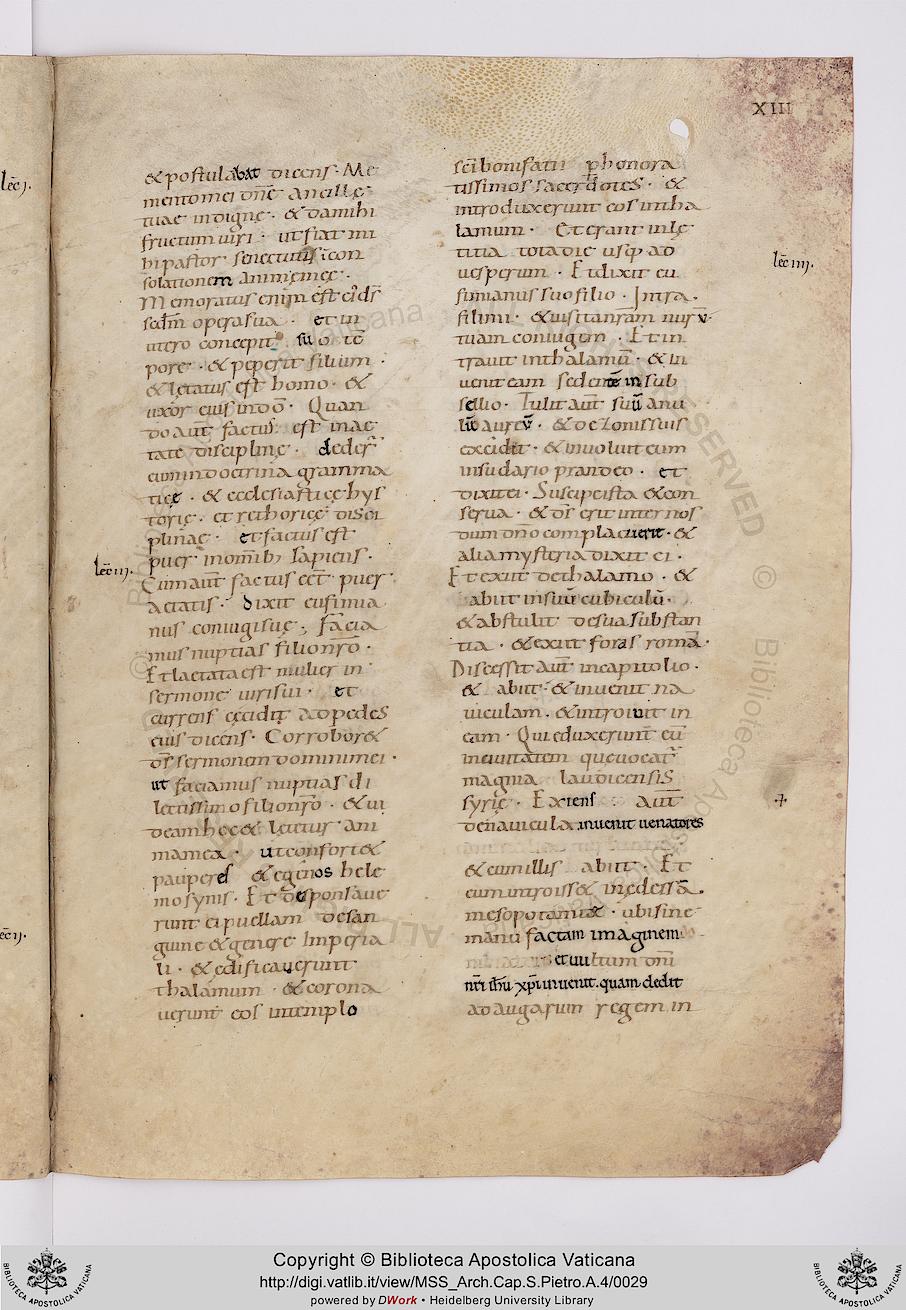 XIII
& postulabat dicens · Me
mento mei dn̄e ancillę
tuae indignę · & da mihi
fructum uiri · ut fiat mi
hi pastor senectutis & con
solationem animę meę ·
Memoratus enim est ei d̄s
scdm̄ opera sua · et in
utero concepit suo tē
pore · & peperit filium ·
& lętatus est homo · &
uxor eius in dō · Quan
do aut̄ factus est in ae
tate disciplinę · deder̄
eum in doctrina gramma
ticę · & ecclesiasticę hys
torię · et rethoricę disci
plinae · et factus est
lec̄ iii.
puer in omīb; sapiens ·
Cum aut̄ factus eēt puer
aetatis · dixit eufimia
nus coniugi suę ; Facia
mus nuptias filio nr̄o ·
Et laetata est mulier in
sermone uiri sui · et
currens cecidit ad pedes
eius dicens · Corrobor&
d̄s sermonem domini mei ·
ut faciamus nuptias di
lectissimo filio nr̄o · & ui
deam hęc & lętetur ani
ma mea · ut confort&
pauperes & egenos hele
mosynis · Et desponsaue
runt ei puellam de san
guine & genere imperia
li · & edificauerunt
thalamum · & corona
uerunt eos in templo
sc̄i bonifatii p honora
tissimos sacerdotes · &
introduxerunt eos in tha
lamum · Et erant in lę
titia tota die usq; ad
uesperum · Et dixit eu
lec̄ iiii.
fimianus suo filio · Intra ·
fili mi · & uisita
tuam coniugem · Et in
trauit in thalamū · & in
uenit eam sedentē in sub
sellio · Tulit aut̄ suū anu
lū aureū · & de zonis suis
excidit · & inuoluit eum
in sudario prandeo · et
dixit ei · Suscipe ista & con
serua · & d̄s erit inter nos
dum dn̄o complacuerit · &
alia mysteria dixit ei ·
Et exiit de thalamo · &
abiit in suū cubiculū ·
& abstulit de sua substan
tia · & exiit foras romā ·
Discessit aut̄ in capitolio ·
& abiit · & inuenit na
uiculam · & introiuit in
eam · Qui eduxerunt eū
in ciuitatem que uocat̄
magna laudicensis
syrię · Exiens aut̄
de nauicula inuenit uenatores
& cum illis abiit · Et
cum introiss& in edessā
mesopotamiae · ubi sine
manu factam imaginem
et uultum dn̄i
nr̄i ih̄u xp̄i inuenit. quam dedit
ad augarum regem in
Copyright © Biblioteca Apostolica Vaticana
http://digi.vatlib.it/view/MSS_Arch.Cap.S.Pietro.A.4/0029
powered by DWork • Heidelberg University Library